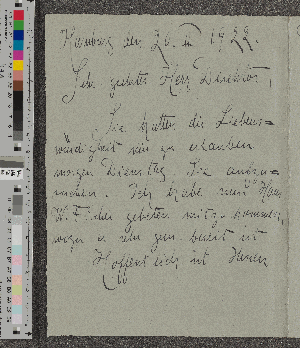 Hannover den 26. III 1922.
Sehr geehrter Herr Direktor,
Sie hatten die Liebens=
würdigkeit mir zu erlauben
morgen Dienstag Sie aufzu=
suchen. Ich habe nun Herrn
W. F. gebeten mitzukommen,
wozu er sehr gern bereit ist
Hoffentlich ist Ihnen